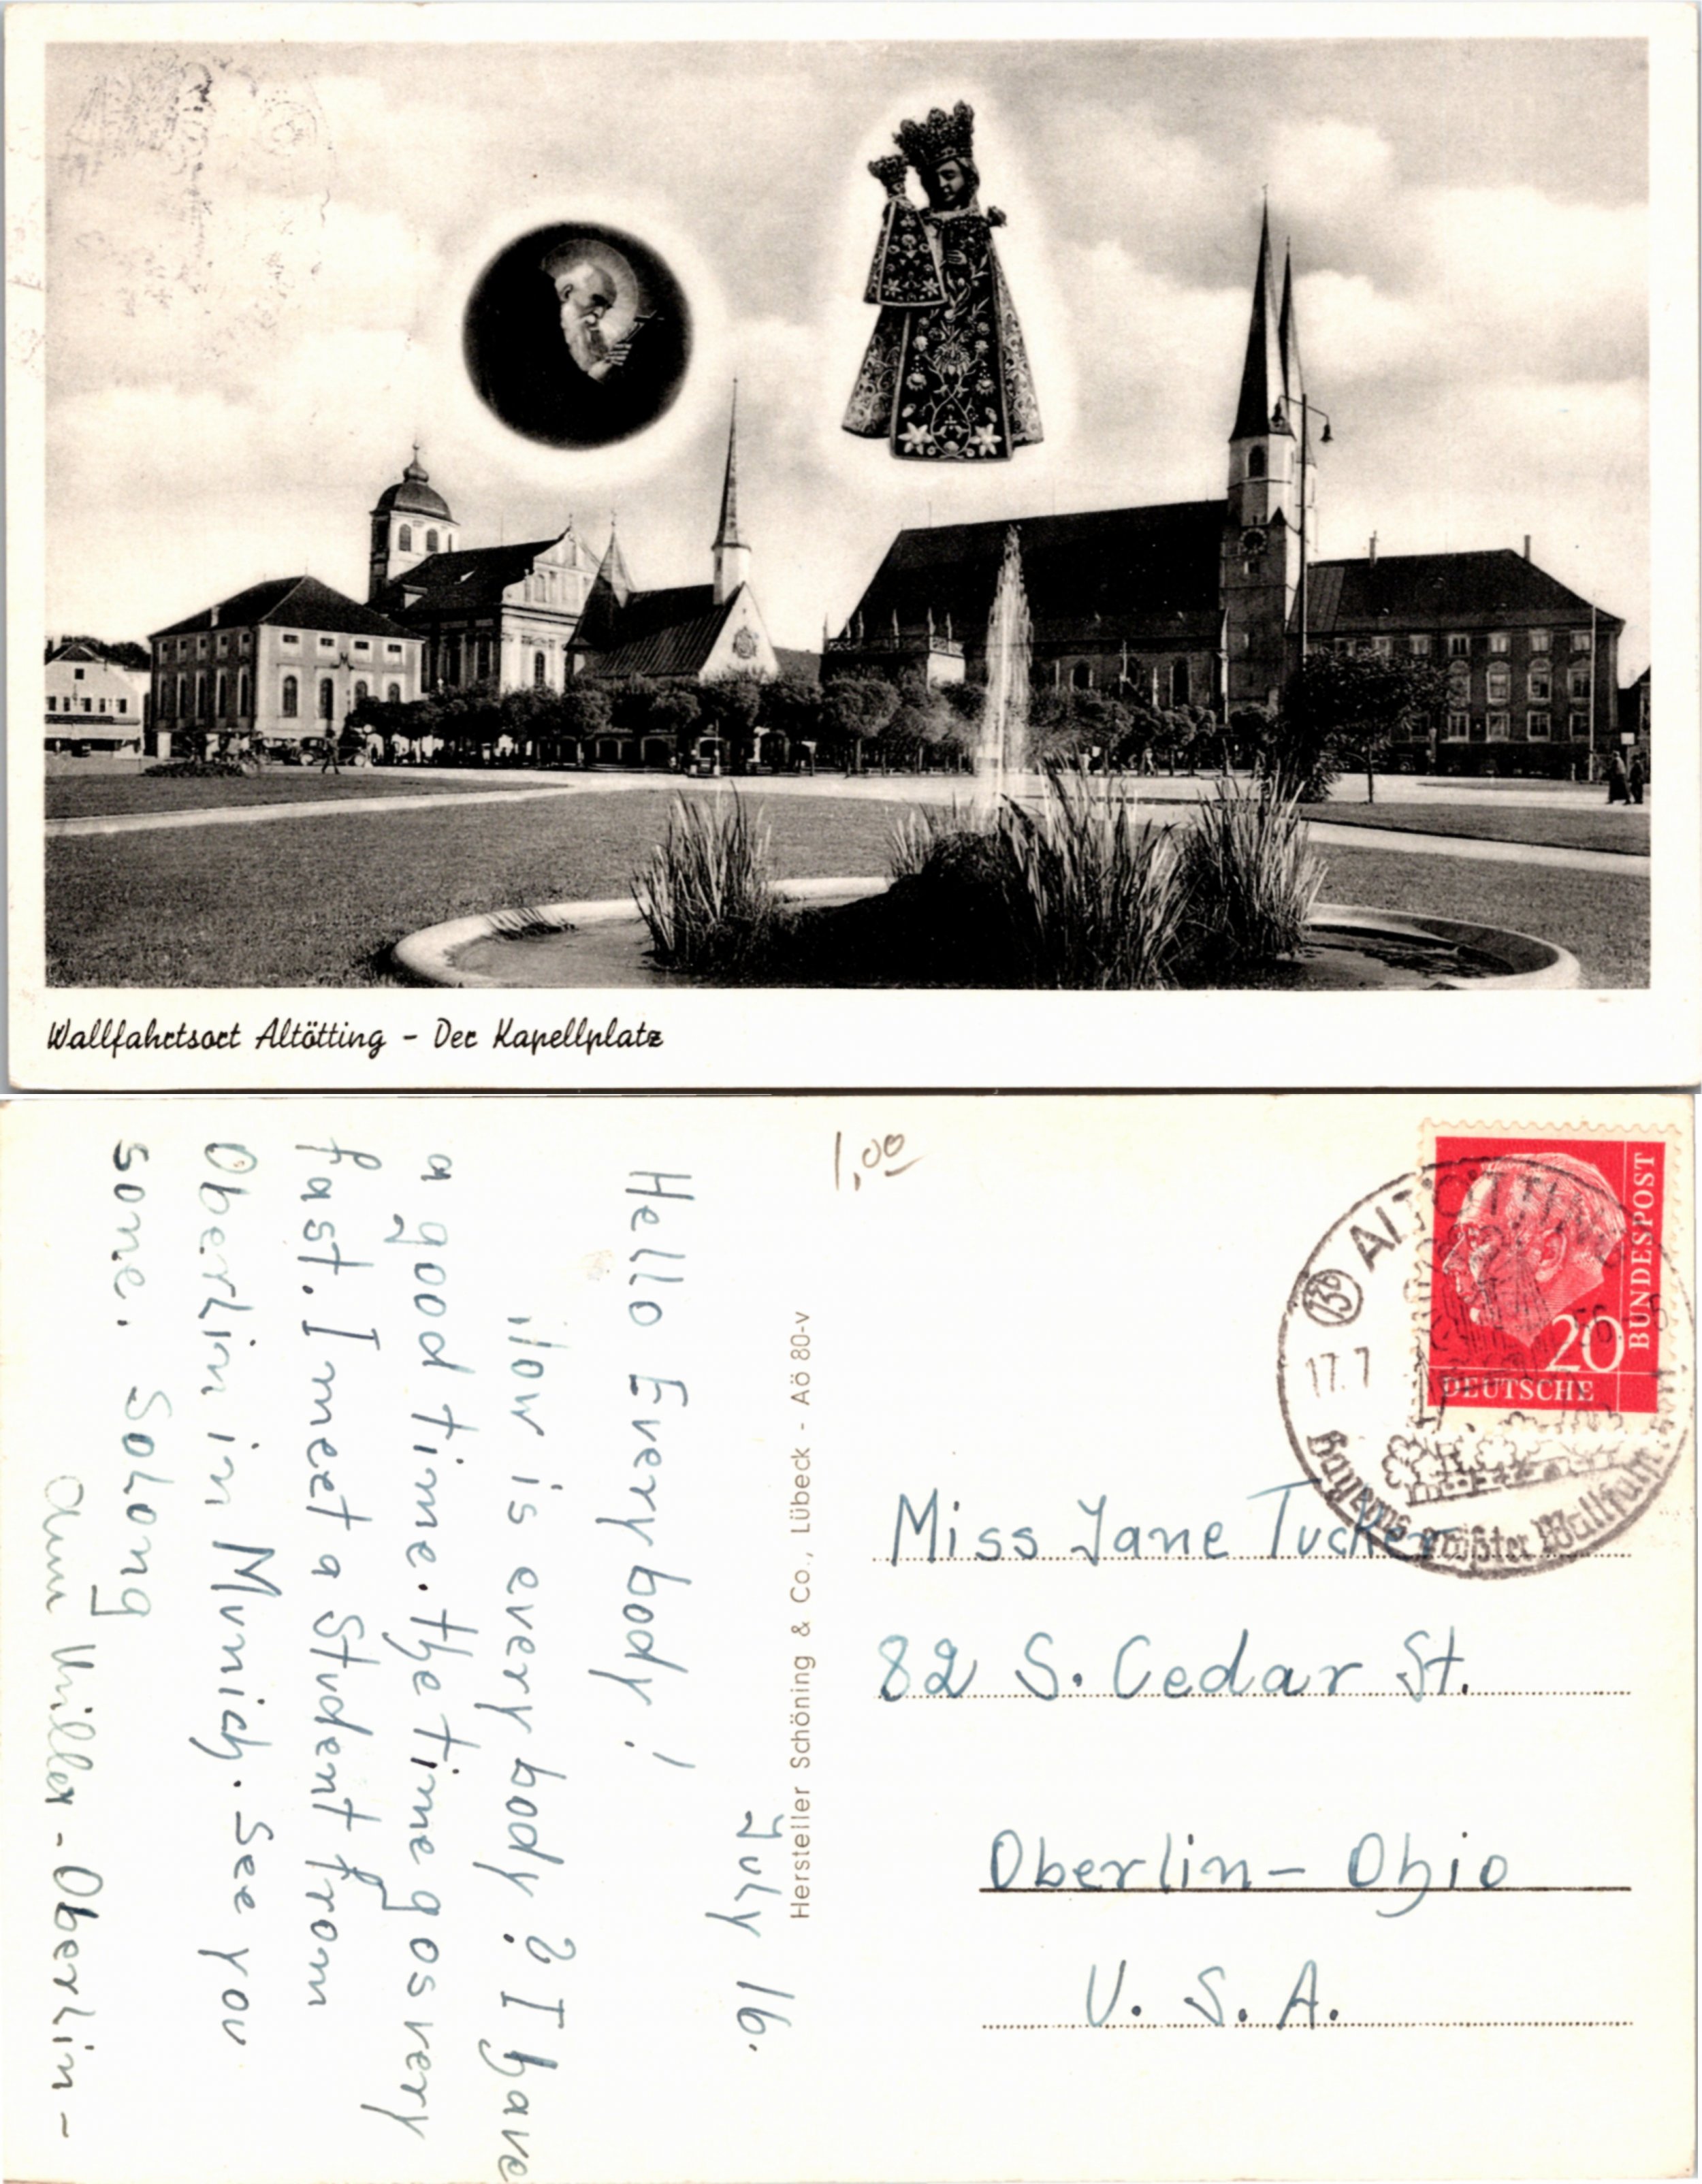 Wallfahrtsort Altötting - Der Kapellplatz
1,00
BUNDESPOST
20
DEUTSCHE
(13b) ALTÖTTING
17.7 56
Bayerns größter Wallfahrtsort
Hersteller Schöning & Co., Lübeck - Aö 80-v
July 16.
Hello Everybody!
How is everybody? I have
a good time. the time gos very
fast. I meet a student from
Oberlin in Munich. See you
sone. Solong
Ann Miller - Oberlin -
Miss Jane Tucker
82 S. Cedar St.
Oberlin - Ohio
U. S. A.